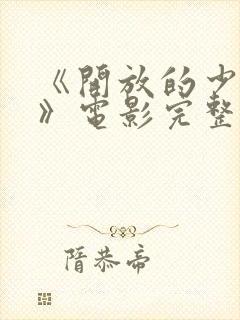 《開放的少
》電影完整
隋恭帝